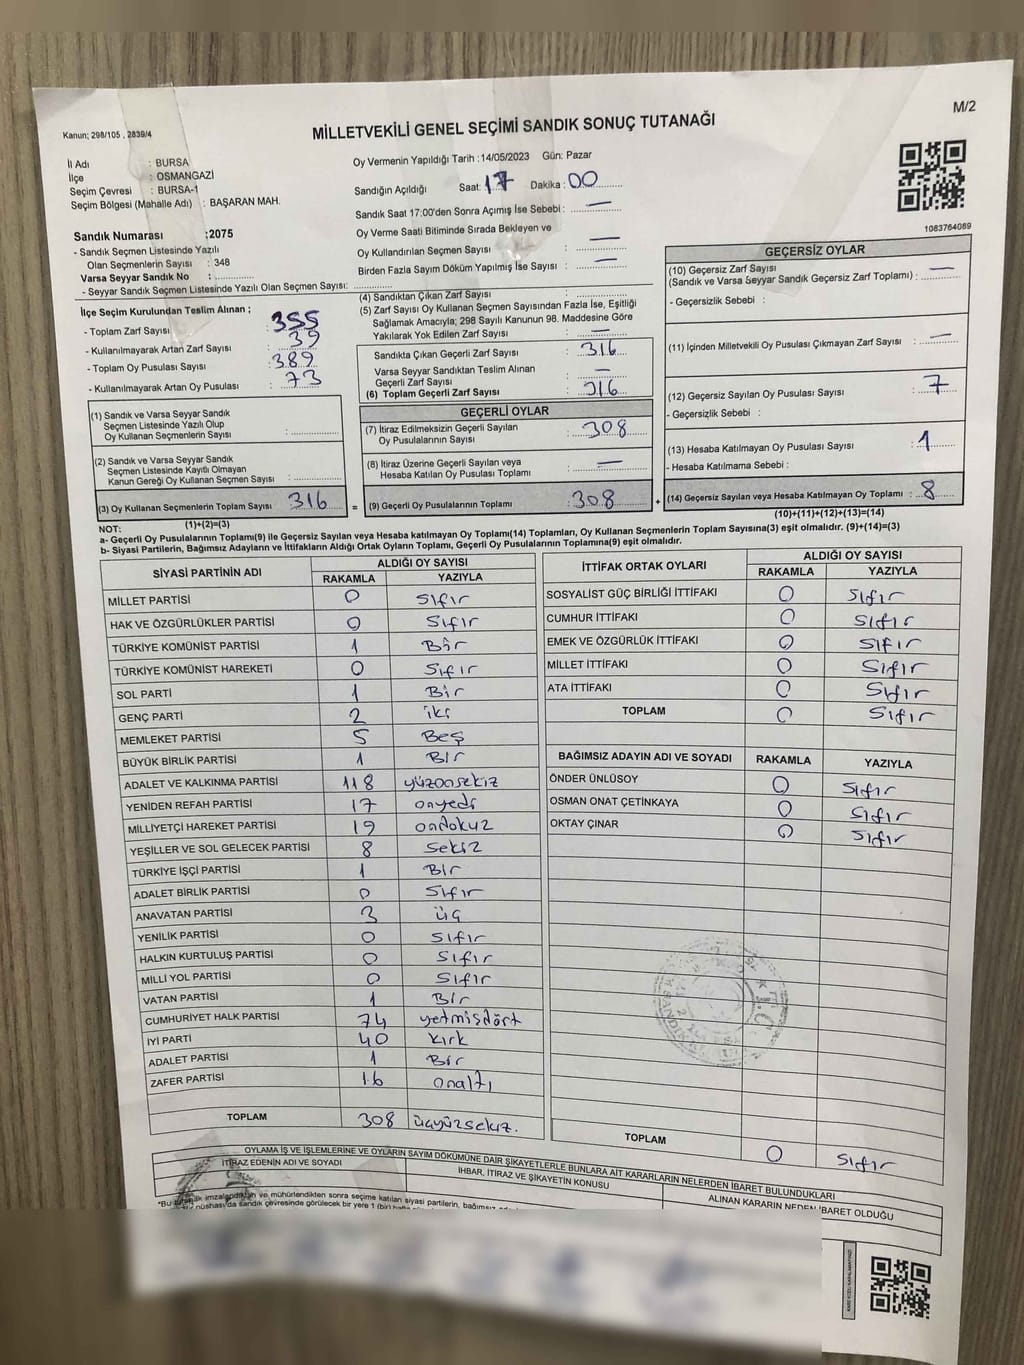 M/2
Kanun; 298/105 , 2839/4
MİLLETVEKİLİ GENEL SEÇİMİ SANDIK SONUÇ TUTANAĞI
İl Adı : BURSA
İlçe : OSMANGAZİ
Seçim Çevresi : BURSA-1
Seçim Bölgesi (Mahalle Adı) : BAŞARAN MAH.
Sandık Numarası :2075
- Sandık Seçmen Listesinde Yazılı
Olan Seçmenlerin Sayısı : 348
Varsa Seyyar Sandık No :
- Seyyar Sandık Seçmen Listesinde Yazılı Olan Seçmen Sayısı:
Oy Vermenin Yapıldığı Tarih :14/05/2023 Gün: Pazar
Sandığın Açıldığı Saat: 17 Dakika : 00
Sandık Saat 17:00'den Sonra Açımış İse Sebebi : —
Oy Verme Saati Bitiminde Sırada Bekleyen ve
Oy Kullandırılan Seçmen Sayısı : —
Birden Fazla Sayım Döküm Yapılmış İse Sayısı : —
1083764089
İlçe Seçim Kurulundan Teslim Alınan ;
- Toplam Zarf Sayısı : 355
- Kullanılmayarak Artan Zarf Sayısı : 39
- Toplam Oy Pusulası Sayısı : 389
- Kullanılmayarak Artan Oy Pusulası : 73
(1) Sandık ve Varsa Seyyar Sandık
Seçmen Listesinde Yazılı Olup
Oy Kullanan Seçmenlerin Sayısı :
(2) Sandık ve Varsa Seyyar Sandık
Seçmen Listesinde Kayıtlı Olmayan
Kanun Gereği Oy Kullanan Seçmen Sayısı :
(3) Oy Kullanan Seçmenlerin Toplam Sayısı : 316
(1)+(2)=(3)
(4) Sandıktan Çıkan Zarf Sayısı :
(5) Zarf Sayısı Oy Kullanan Seçmen Sayısından Fazla İse, Eşitliği
Sağlamak Amacıyla; 298 Sayılı Kanunun 98. Maddesine Göre
Yakılarak Yok Edilen Zarf Sayısı : —
Sandıkta Çıkan Geçerli Zarf Sayısı : 316
Varsa Seyyar Sandıktan Teslim Alınan
Geçerli Zarf Sayısı : —
(6) Toplam Geçerli Zarf Sayısı : 316
GEÇERLİ OYLAR
(7) İtiraz Edilmeksizin Geçerli Sayılan
Oy Pusulalarının Sayısı : 308
(8) İtiraz Üzerine Geçerli Sayılan veya
Hesaba Katılan Oy Pusulası Toplamı : —
= (9) Geçerli Oy Pusulalarının Toplamı : 308 +
GEÇERSİZ OYLAR
(10) Geçersiz Zarf Sayısı
(Sandık ve Varsa Seyyar Sandık Geçersiz Zarf Toplamı) : —
- Geçersizlik Sebebi :
(11) İçinden Milletvekili Oy Pusulası Çıkmayan Zarf Sayısı : —
(12) Geçersiz Sayılan Oy Pusulası Sayısı : 7
- Geçersizlik Sebebi :
(13) Hesaba Katılmayan Oy Pusulası Sayısı : 1
- Hesaba Katılmama Sebebi :
(14) Geçersiz Sayılan veya Hesaba Katılmayan Oy Toplamı : 8
(10)+(11)+(12)+(13)=(14)
NOT:
a- Geçerli Oy Pusulalarının Toplamı(9) ile Geçersiz Sayılan veya Hesaba katılmayan Oy Toplamı(14) Toplamları, Oy Kullanan Seçmenlerin Toplam Sayısına(3) eşit olmalıdır. (9)+(14)=(3)
b- Siyasi Partilerin, Bağımsız Adayların ve İttifakların Aldığı Ortak Oyların Toplamı, Geçerli Oy Pusulalarının Toplamına(9) eşit olmalıdır.
SİYASİ PARTİNİN ADI ALDIĞI OY SAYISI
RAKAMLA YAZIYLA
MİLLET PARTİSİ 0 Sıfır
HAK VE ÖZGÜRLÜKLER PARTİSİ 0 Sıfır
TÜRKİYE KOMÜNİST PARTİSİ 1 Bir
TÜRKİYE KOMÜNİST HAREKETİ 0 Sıfır
SOL PARTİ 1 Bir
GENÇ PARTİ 2 iki
MEMLEKET PARTİSİ 5 Beş
BÜYÜK BİRLİK PARTİSİ 1 Bir
ADALET VE KALKINMA PARTİSİ 118 yüzonsekiz
YENİDEN REFAH PARTİSİ 17 onyedi
MİLLİYETÇİ HAREKET PARTİSİ 19 ondokuz
YEŞİLLER VE SOL GELECEK PARTİSİ 8 Sekiz
TÜRKİYE İŞÇİ PARTİSİ 1 Bir
ADALET BİRLİK PARTİSİ 0 Sıfır
ANAVATAN PARTİSİ 3 üç
YENİLİK PARTİSİ 0 Sıfır
HALKIN KURTULUŞ PARTİSİ 0 Sıfır
MİLLİ YOL PARTİSİ 0 Sıfır
VATAN PARTİSİ 1 Bir
CUMHURİYET HALK PARTİSİ 74 yetmişdört
İYİ PARTİ 40 kırk
ADALET PARTİSİ 1 Bir
ZAFER PARTİSİ 16 onaltı
TOPLAM 308 üçyüzsekiz.
İTTİFAK ORTAK OYLARI ALDIĞI OY SAYISI
RAKAMLA YAZIYLA
SOSYALİST GÜÇ BİRLİĞİ İTTİFAKI 0 Sıfır
CUMHUR İTTİFAKI 0 Sıfır
EMEK VE ÖZGÜRLÜK İTTİFAKI 0 Sıfır
MİLLET İTTİFAKI 0 Sıfır
ATA İTTİFAKI 0 Sıfır
TOPLAM 0 Sıfır
BAĞIMSIZ ADAYIN ADI VE SOYADI RAKAMLA YAZIYLA
ÖNDER ÜNLÜSOY 0 Sıfır
OSMAN ONAT ÇETİNKAYA 0 Sıfır
OKTAY ÇINAR 0 Sıfır
TOPLAM 0 Sıfır
OYLAMA İŞ VE İŞLEMLERİNE VE OYLARIN SAYIM DÖKÜMÜNE DAİR ŞİKAYETLERLE BUNLARA AİT KARARLARIN NELERDEN İBARET BULUNDUKLARI
İTİRAZ EDENİN ADI VE SOYADI İHBAR, İTİRAZ VE ŞİKAYETİN KONUSU ALINAN KARARIN NEDEN İBARET OLDUĞU
imzalandıktan ve mühürlendikten sonra seçime katılan siyasi partilerin, bağımsız
nüshası da sandık çevresinde görülecek bir yere 1 (bir) hafta